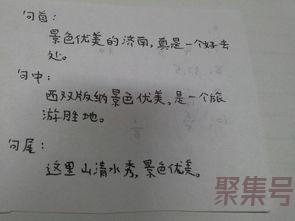 句首：
景色优美的济南，真是一个好去
处。
句中：
西双版纳景色优美，是一个旅
游胜地。
句尾：
这里山清水秀，景色优美。
聚集号